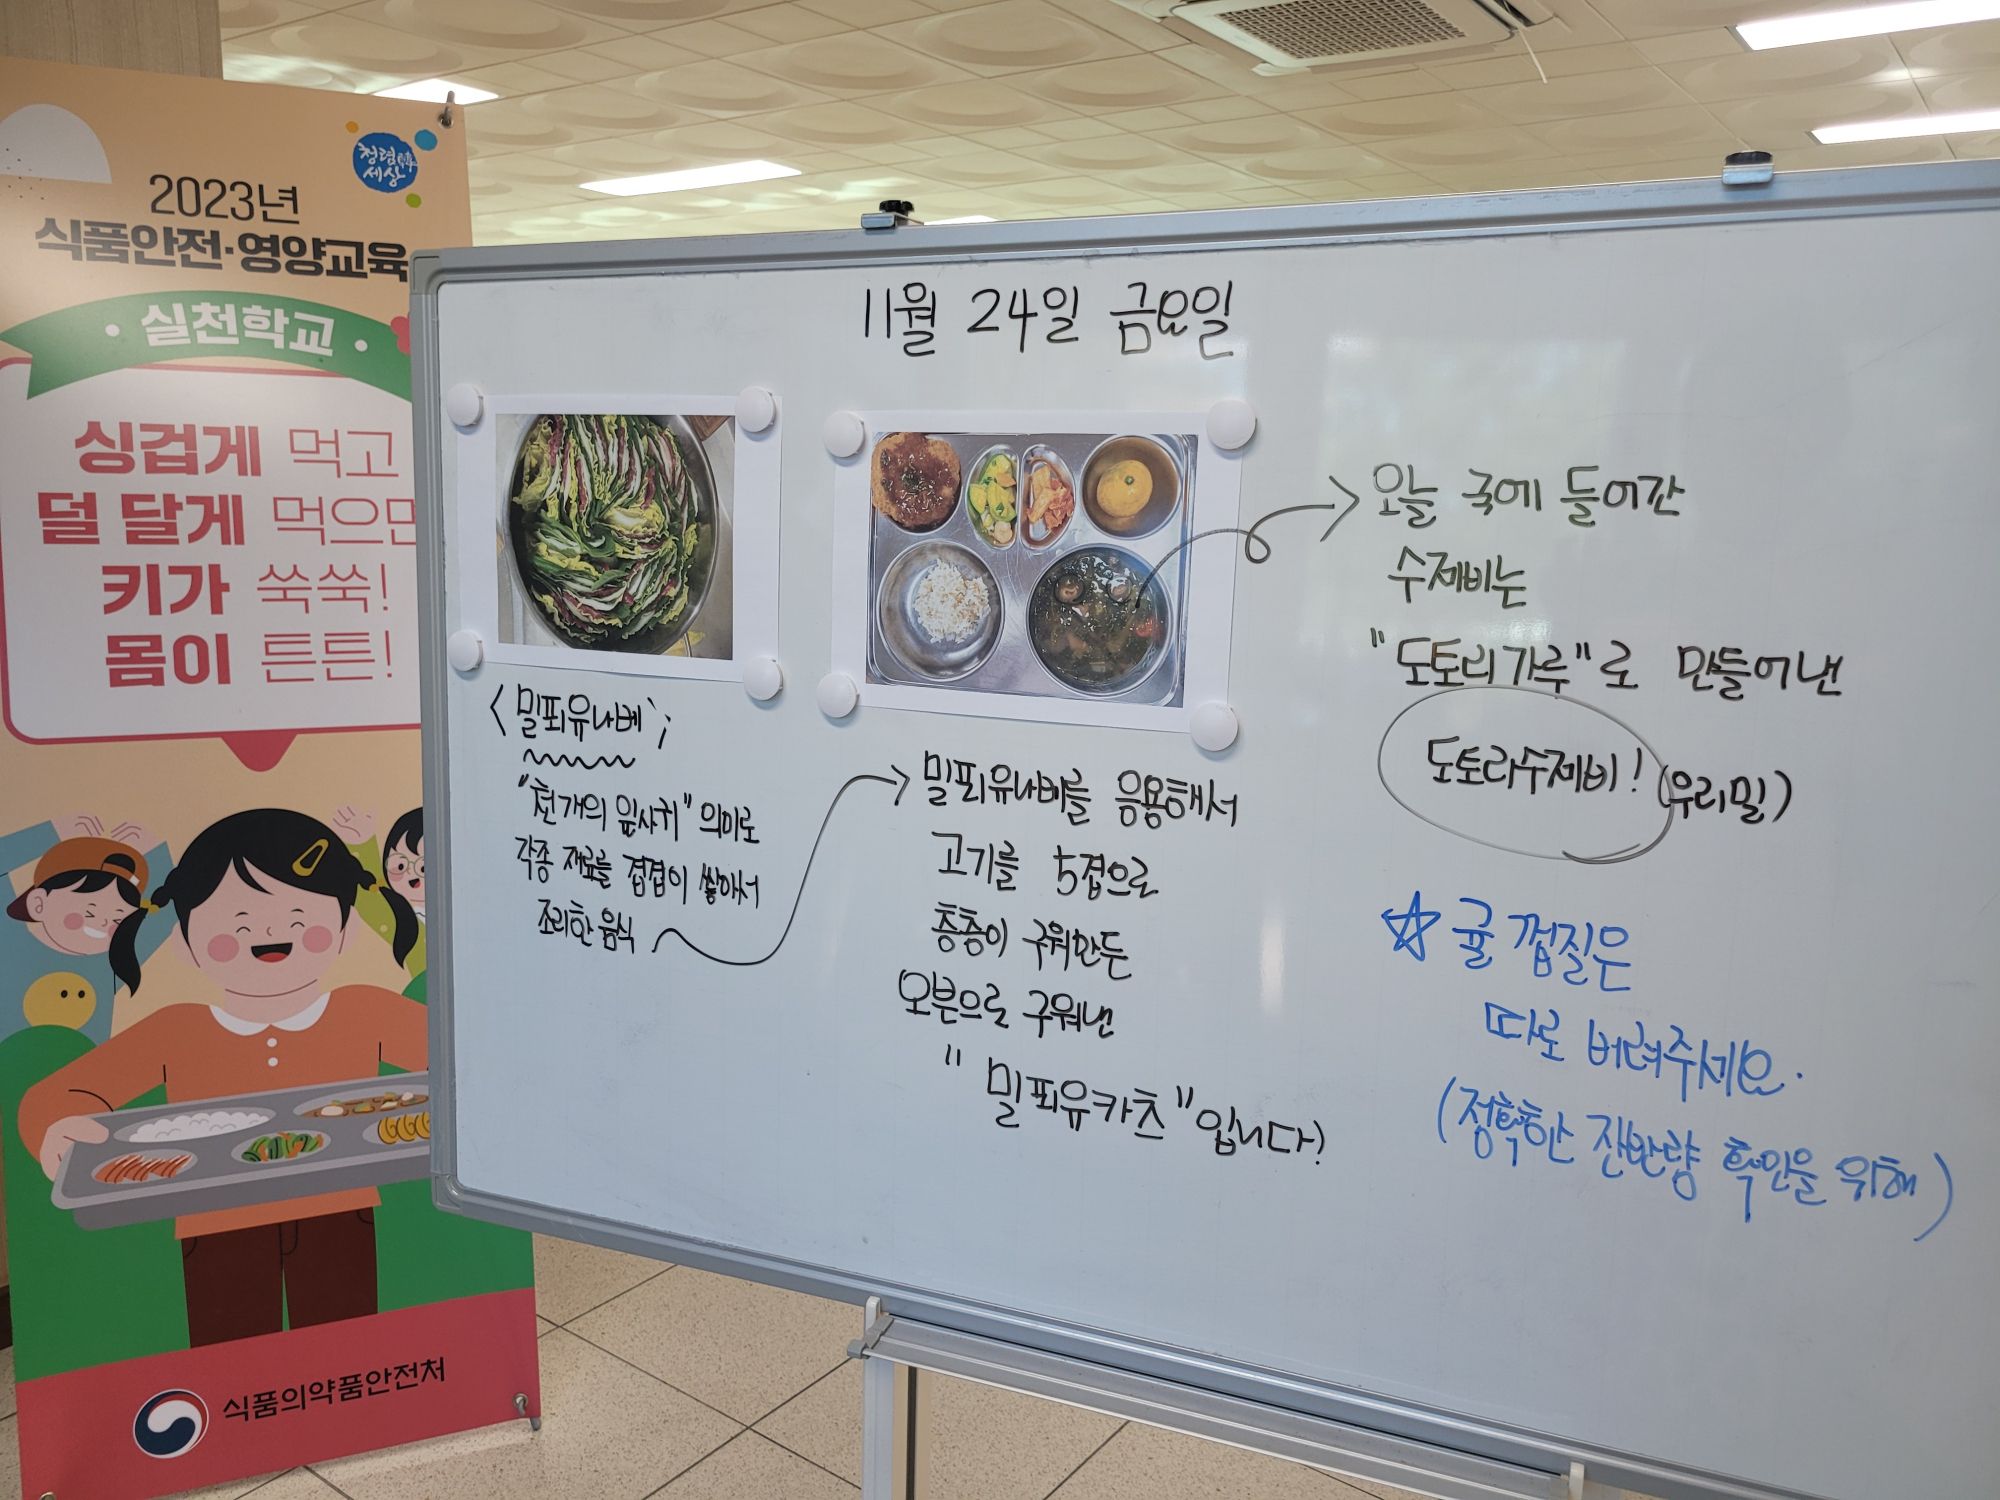 청렴韓세상
2023년
식품안전·영양교육
· 실천학교 ·
싱겁게 먹고
덜 달게 먹으면
키가 쑥쑥!
몸이 튼튼!
식품의약품안전처
11월 24일 금요일
< 밀푀유나베 ;
"천개의 잎사귀" 의미로
각종 재료를 겹겹이 쌓아서
조리한 음식
밀푀유나베를 응용해서
고기를 5겹으로
층층이 구워만든
오븐으로 구워낸
"밀푀유카츠"입니다?
오늘 국에 들어간
수제비는
"도토리가루"로 만들어낸
도토리수제비! (우리밀)
☆ 귤 껍질은
따로 버려주세요.
(정확한 잔반량 확인을 위해)